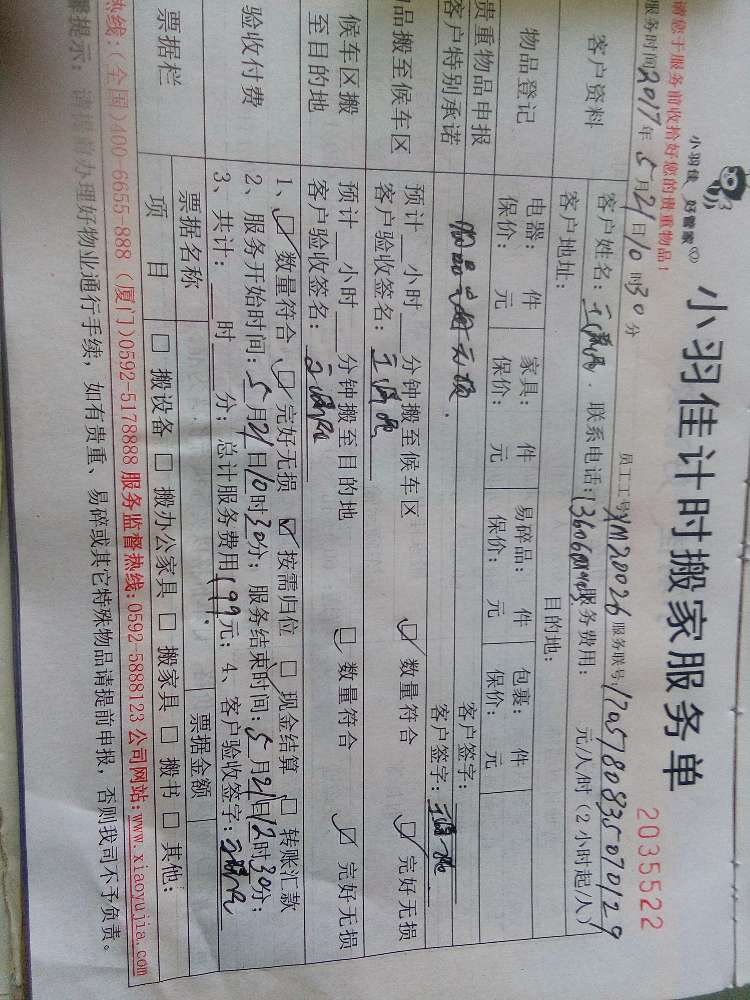 小羽佳 好管家
小羽佳计时搬家服务单
2035522
请您于服务前收拾好您的贵重物品！
服务时间2017年5月21日10时30分 员工工号XM20026 服务联号:1705780835070129
客户资料 客户姓名: 联系电话: 服务费用: 元/人/时(2小时起/人)
客户地址: 目的地:
物品登记 电器: 件 家具: 件 易碎品: 件 包裹: 件
保价: 元 保价: 元 保价: 元 保价: 元
贵重物品申报 客户签字:
客户特别承诺 客户签字:
品搬至候车区 预计 小时 分钟搬至候车区 ☑ 数量符合 ☑ 完好无损
客户验收签名:
候车区搬至目的地 预计 小时 分钟搬至目的地 ☑ 数量符合 ☑ 完好无损
客户验收签名:
验收付费 1、☑ 数量符合 ☑ 完好无损 ☑ 按需归位 □ 现金结算 □ 转账汇款
2、服务开始时间:5月21日10时30分; 服务结束时间:5月21日12时30分;
3、共计: 时 分; 总计服务费用199元; 4、客户验收签字:
票据栏 票据名称 票据金额
项 目 □ 搬设备 □ 搬办公家具 □ 搬家具 □ 搬书 □ 其他:
热线:(全国)400-6655-888 (厦门)0592-5178888 服务监督热线:0592-5888123 公司网站:www.xiaoyujia.com
提示: 请提前办理好物业通行手续，如有贵重、易碎或其它特殊物品请提前申报，否则我司不予负责。